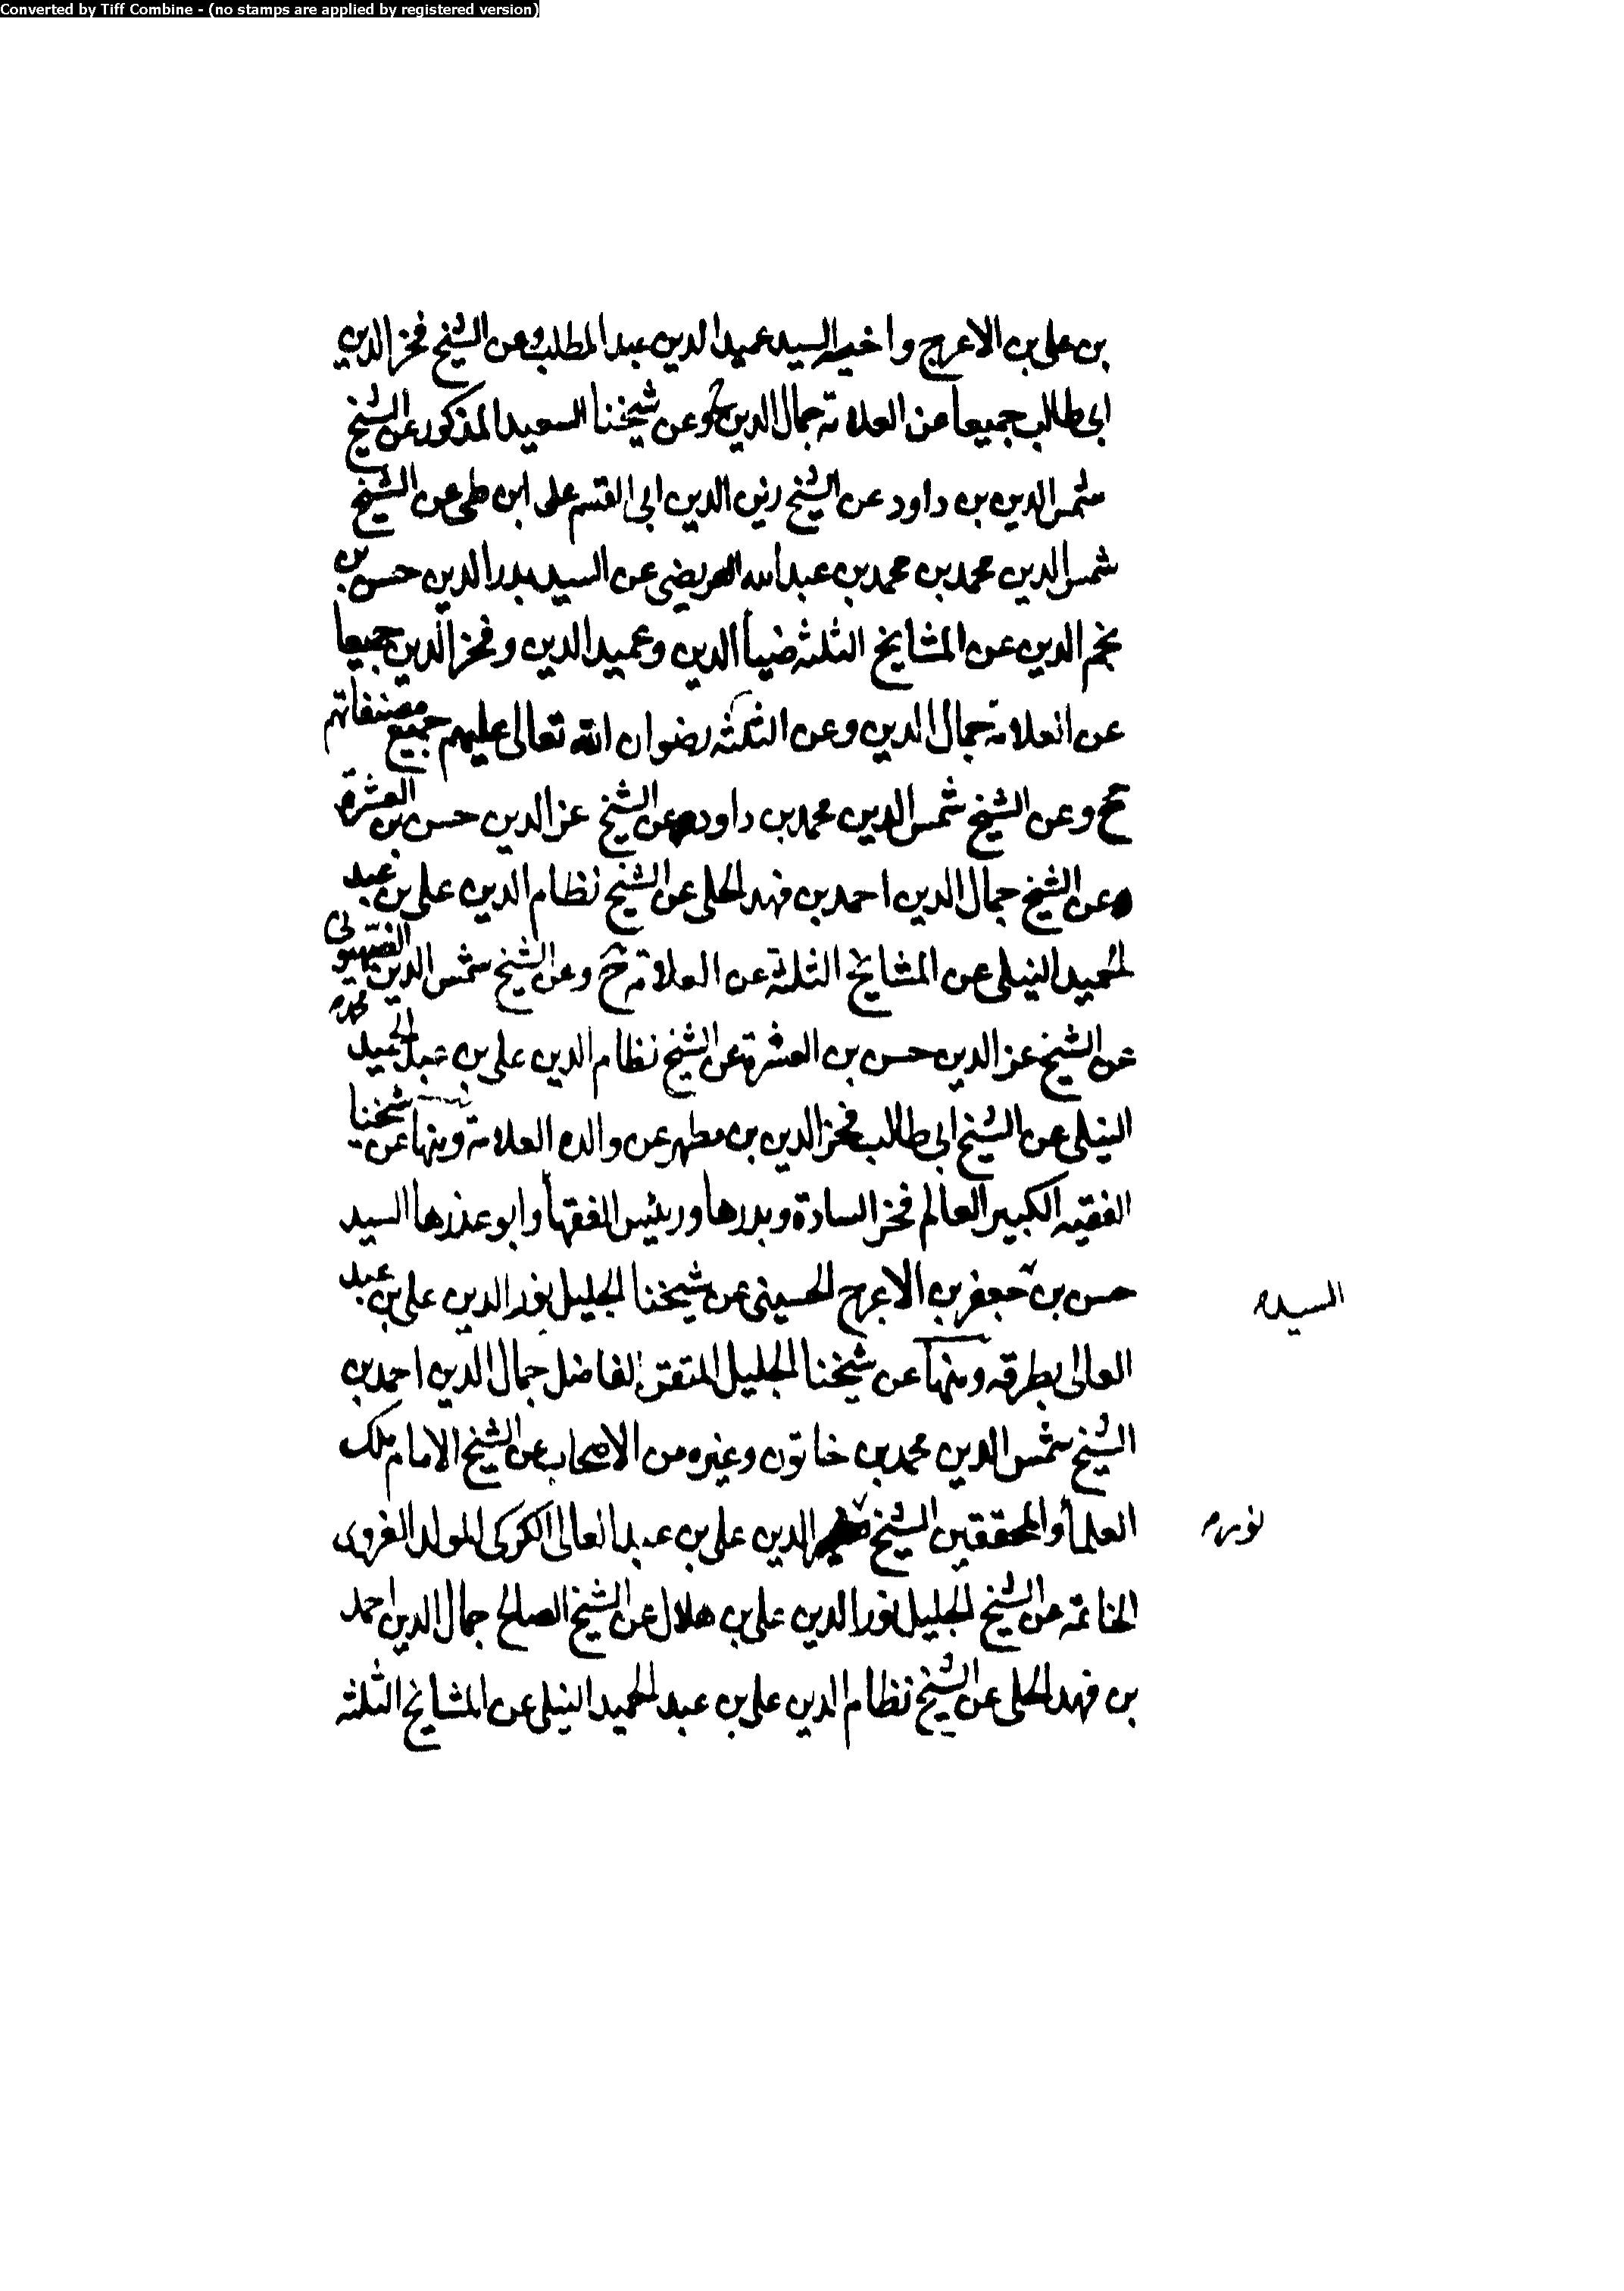 Converted by Tiff Combine - (no stamps are applied by registered version)
بن على بن الاعرج واخيه السيد عميد الدين عبد المطلب وعن الشيخ فخر الدين
ابى طالب جميعا عن العلامة جمال الدين ح وعن شيخنا السعيد المذكور عن الشيخ
شمس الدين بن داود عن الشيخ زين الدين ابى القسم على ابن طى عن الشيخ
شمس الدين محمد بن محمد بن عبد الله العريضى عن السيد بدر الدين حسن بن
نجم الدين عن المشايخ الثلثة ضياء الدين وعميد الدين وفخر الدين جميعا
عن العلامة جمال الدين وعن الثلثة رضوان الله تعالى عليهم جميع مصنفاتهم
ح وعن الشيخ شمس الدين محمد بن داود عن الشيخ عز الدين حسن بن العشرة
وعن الشيخ جمال الدين احمد بن فهد الحلى عن الشيخ نظام الدين على بن عبد
الحميد النيلى عن المشايخ الثلثة عن العلامة ح وعن الشيخ شمس الدين الصهيونى
عن الشيخ عز الدين حسن بن العشرة عن الشيخ نظام الدين على بن عبد الحميد
النيلى عن الشيخ ابى طالب فخر الدين بن مطهر عن والده العلامة ومنها عن شيخنا
الفقيه الكبير العالم فخر السادة وبدرها ورئيس الفقهاء وابو عذرها السيد
حسن بن جعفر بن الاعرج الحسينى عن شيخنا الجليل نور الدين على بن عبد
السيد
العالى بطرقه ومنها عن شيخنا الجليل المتقن الفاضل جمال الدين احمد بن
الشيخ شمس الدين محمد بن خاتون وغيره من الاصحاب عن الشيخ الامام ملك
العلماء والمحققين الشيخ الدين على بن عبد العالى الكركى المولد الغروى
نور
الخاتمة عن الشيخ الجليل نور الدين على بن هلال عن الشيخ الصالح جمال الدين احمد
بن فهد الحلى عن الشيخ نظام الدين على بن عبد الحميد النيلى عن المشايخ الثلثة